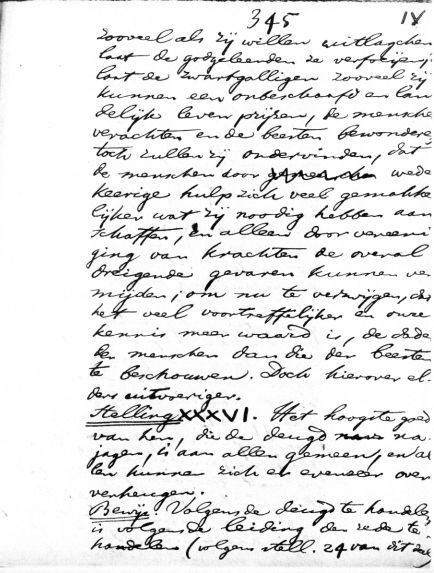 345 IV
zooveel als zij willen uitlagchen
laat de godgeleerden ze verfoeijen,
laat de zwartgalligen zooveel zij
kunnen een onbeschaafd en lan
delijk leven prijzen, de mensche
verachten en de beesten bewondere
toch zullen zij ondervinden, dat
de menschen door wede
keerige hulp zich veel gemakke
lijker wat zij noodig hebben aan
schaffen, en alleen door vereeni
ging van krachten de overal
dreigende gevaren kunnen ver
mijden; om nu te verzwijgen, da
het veel voortreffelijker en onze
kennis meer waard is, de dade
der menschen dan die der beesten
te beschouwen. Doch hierover el
ders uitvoeriger.
Stelling XXXVI. Het hoogste goed
van hen, die de deugd na
jagen, is aan allen gemeen, en al
len kunne zich er evenzeer over
verheugen.
Bewijs. Volgens de deugd te handele
is volgens de leiding der rede te
handelen (volgens stell. 24 van dit deel